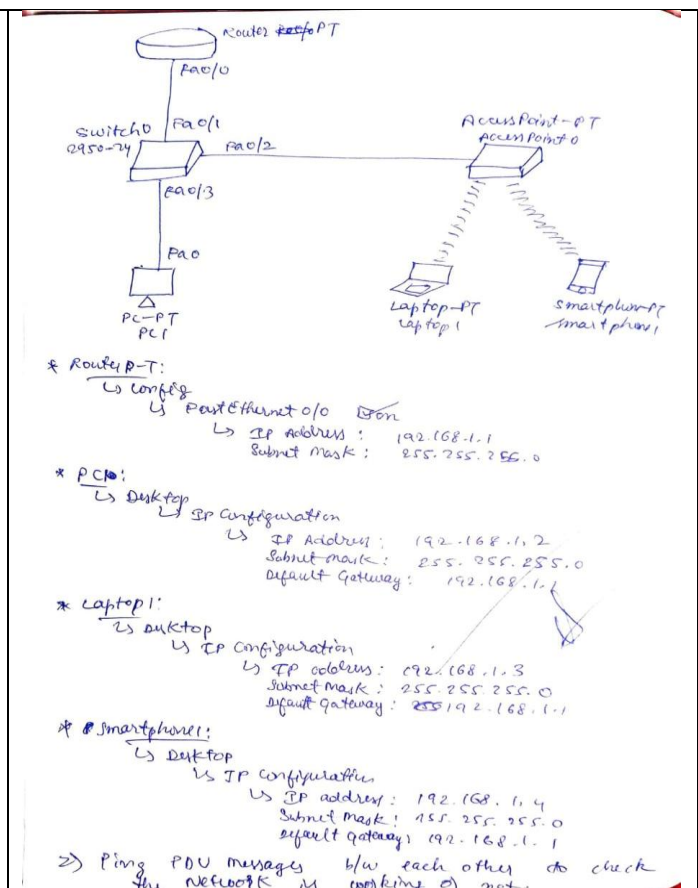 Router PT
Fa0/0
Switch0
2950-24
Fa0/1
Fa0/2
Fa0/3
Fa0
PC-PT
PC1
AccessPoint-PT
AccessPoint0
Laptop-PT
Laptop1
Smartphon-PT
Smartphone1
* RouterP-T:
↳ Config
↳ FastEthernet 0/0 on
↳ IP Address : 192.168.1.1
Subnet Mask : 255.255.255.0
* PC1:
↳ Desktop
↳ IP Configuration
↳ IP Address : 192.168.1.2
Subnet mask : 255.255.255.0
Default Gateway : 192.168.1.1
* Laptop1:
↳ Desktop
↳ IP Configuration
↳ IP address : 192.168.1.3
Subnet Mask : 255.255.255.0
Default Gateway : 192.168.1.1
* Smartphone1:
↳ Desktop
↳ IP Configuration
↳ IP address : 192.168.1.4
Subnet Mask : 255.255.255.0
Default Gateway : 192.168.1.1
2) Ping PDU messages b/w each other to check
the Network is working or not.